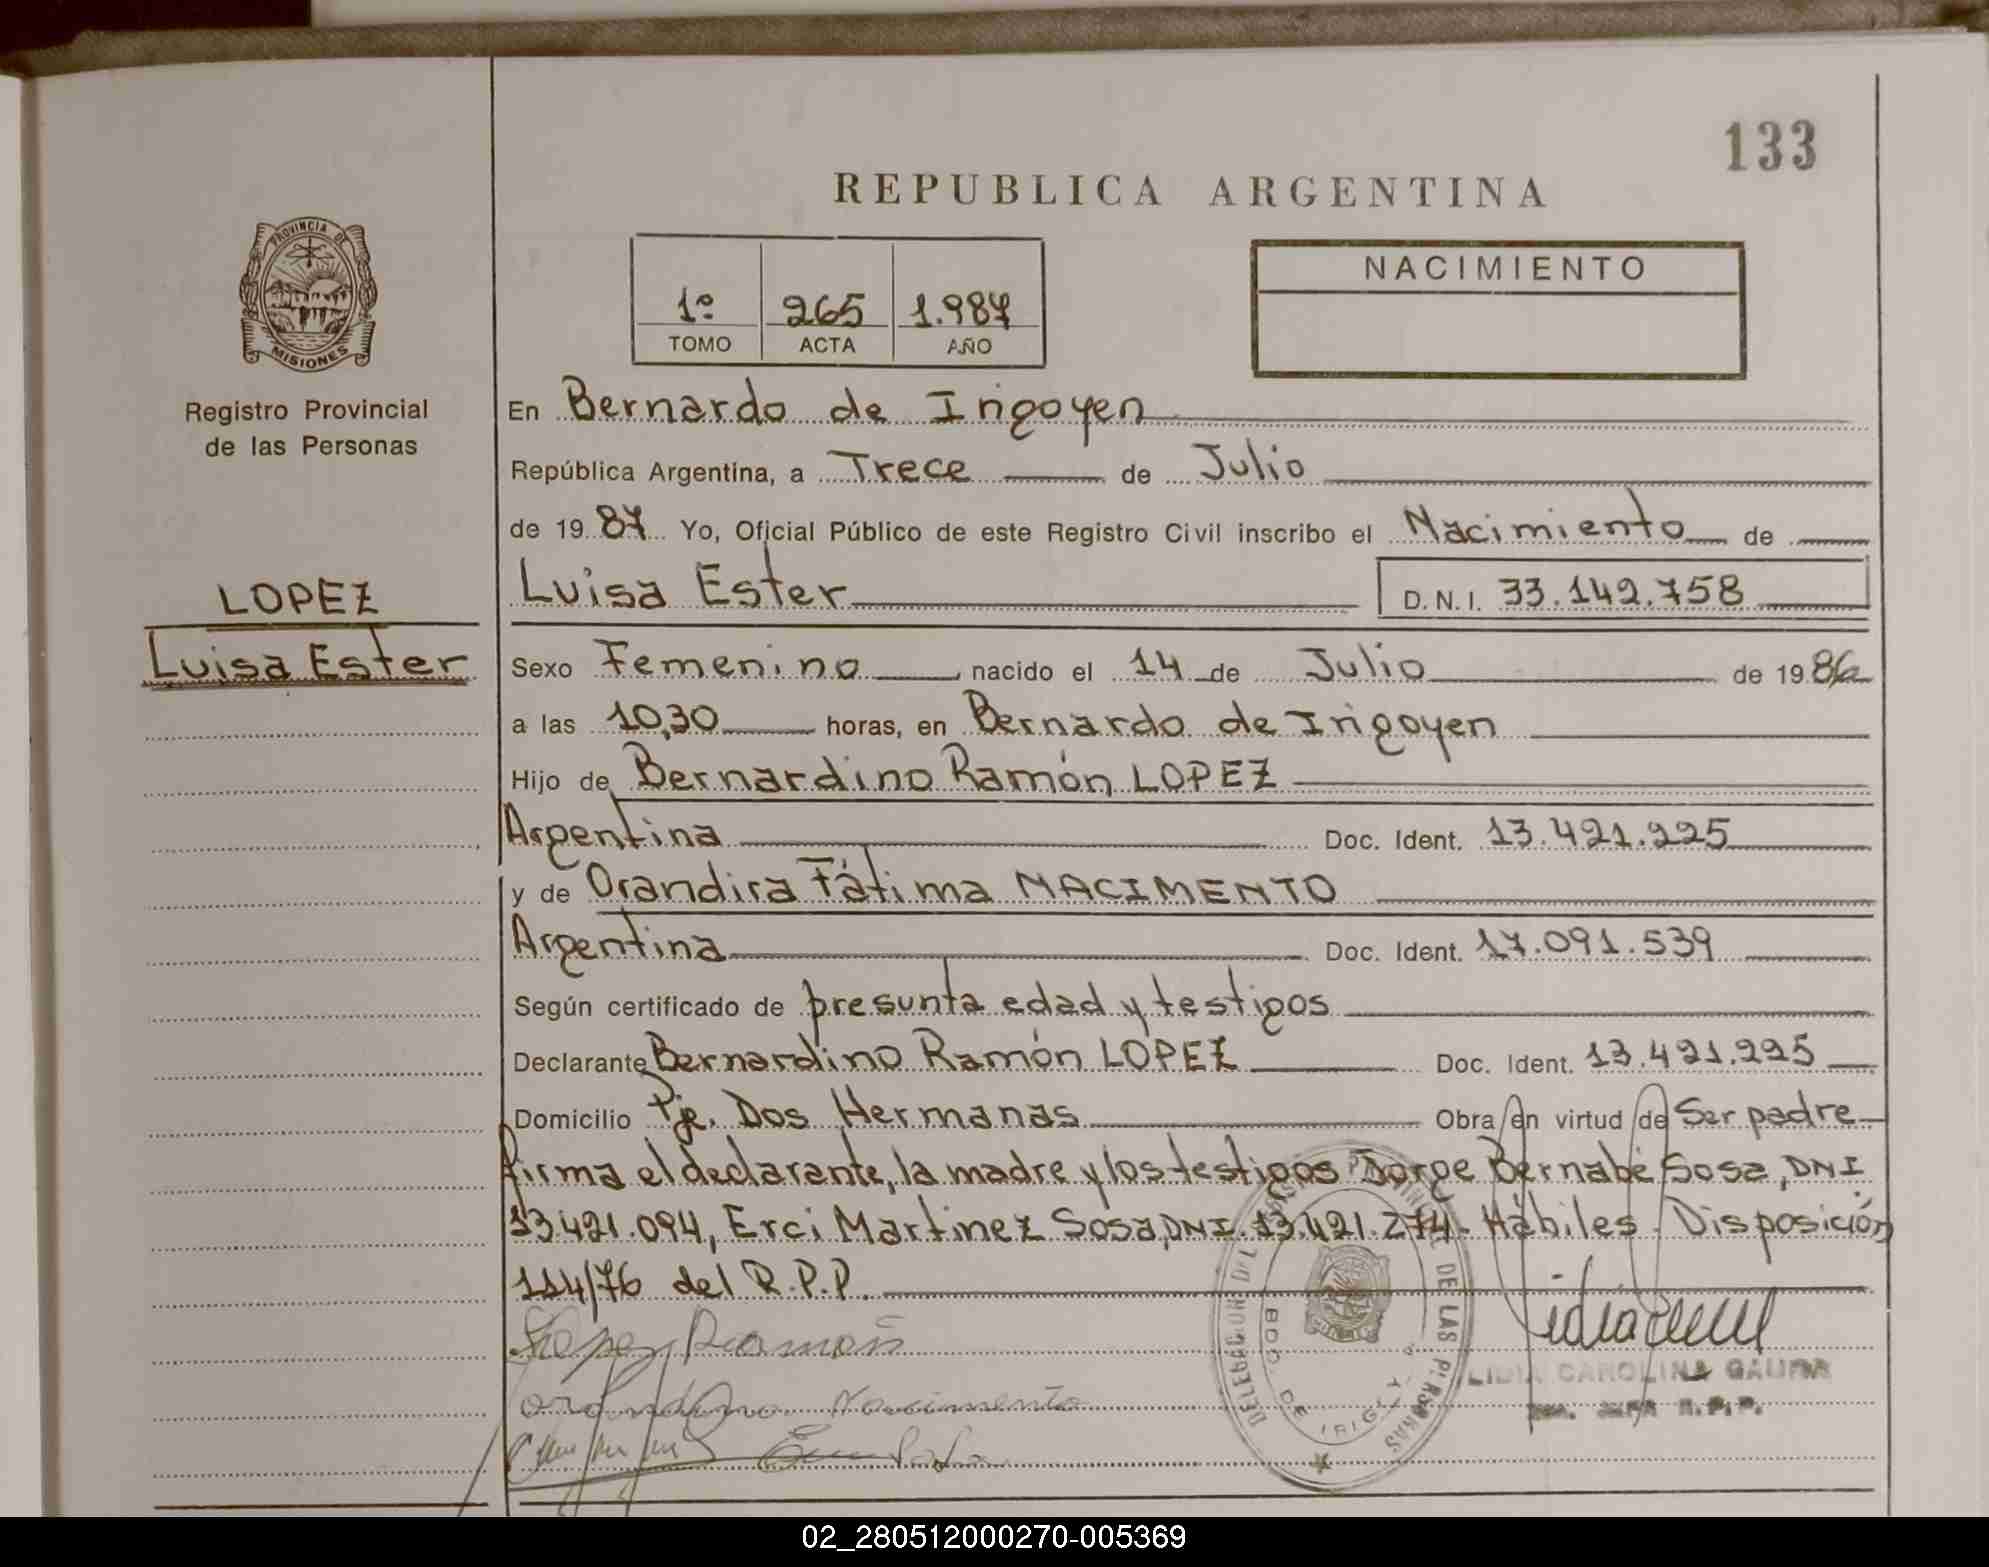 133
REPUBLICA ARGENTINA
PROVINCIA DE
MISIONES
Registro Provincial
de las Personas
1º 265 1.987
TOMO ACTA AÑO
NACIMIENTO
En Bernardo de Irigoyen
República Argentina, a Trece de Julio
de 19 87 Yo, Oficial Público de este Registro Civil inscribo el Nacimiento de
LOPEZ
Luisa Ester
Luisa Ester D.N.I. 33.142.758
Sexo Femenino nacido el 14 de Julio de 19 86
a las 10,30 horas, en Bernardo de Irigoyen
Hijo de Bernardino Ramón LOPEZ
Argentina Doc. Ident. 13.421.225
y de Orandira Fátima NACIMENTO
Argentina Doc. Ident. 17.091.539
Según certificado de presunta edad y testigos
Declarante Bernardino Ramón LOPEZ Doc. Ident. 13.421.225
Domicilio Pje. Dos Hermanas Obra en virtud de Ser padre
firma el declarante, la madre y los testigos Jorge Bernabé Sosa, DNI.
13.421.094, Erci Martinez Sosa, DNI. 13.421.274. Hábiles. Disposición
114/76 del R.P.P.
Lopez Ramón
Nacimento
DELEGACION DEL REGISTRO PROVINCIAL DE LAS PERSONAS
BDO. DE IRIGOYEN
LIDIA CAROLINA
R.P.P.
02_280512000270-005369